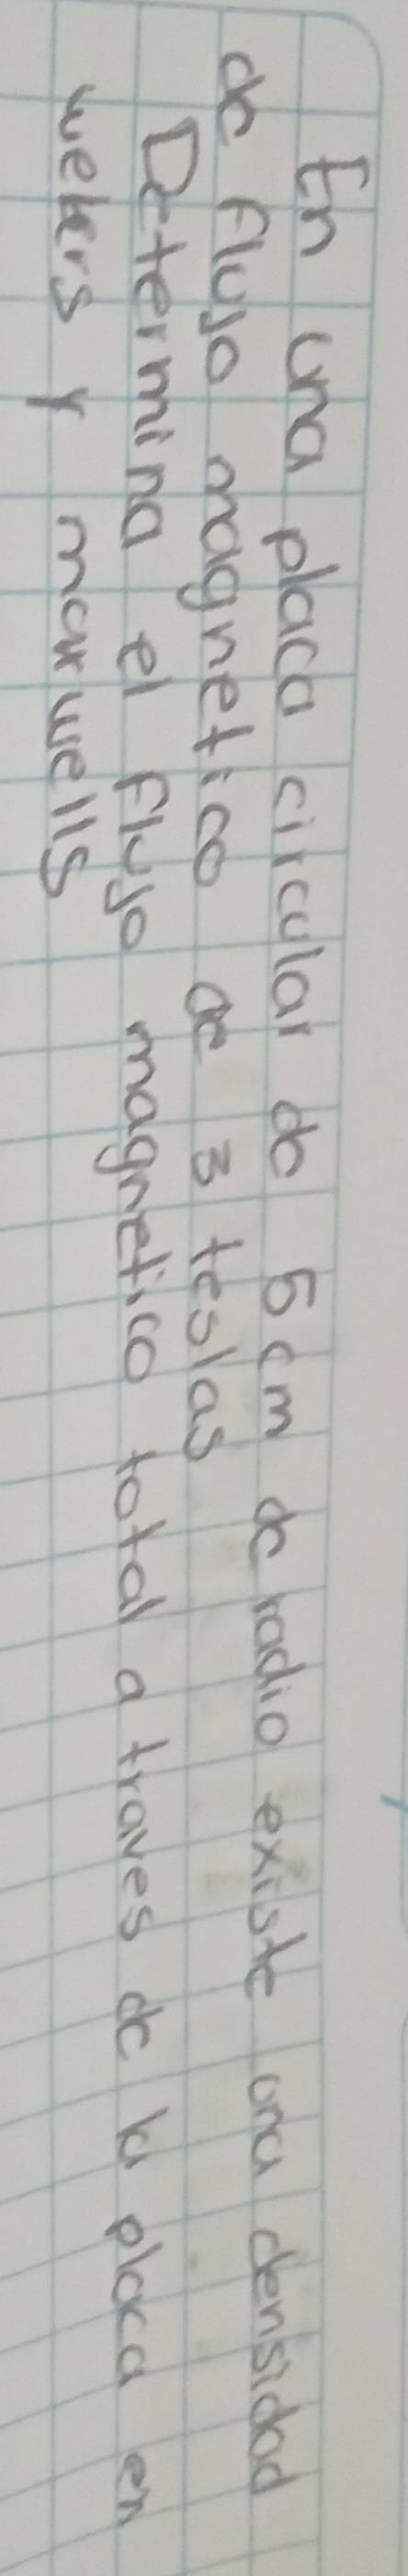 En una placa circular de 5cm de radio existe una densidad
de flujo magnetico de 3 teslas
Determina el flujo magnetico total a traves de la placa en
webers y maxwells